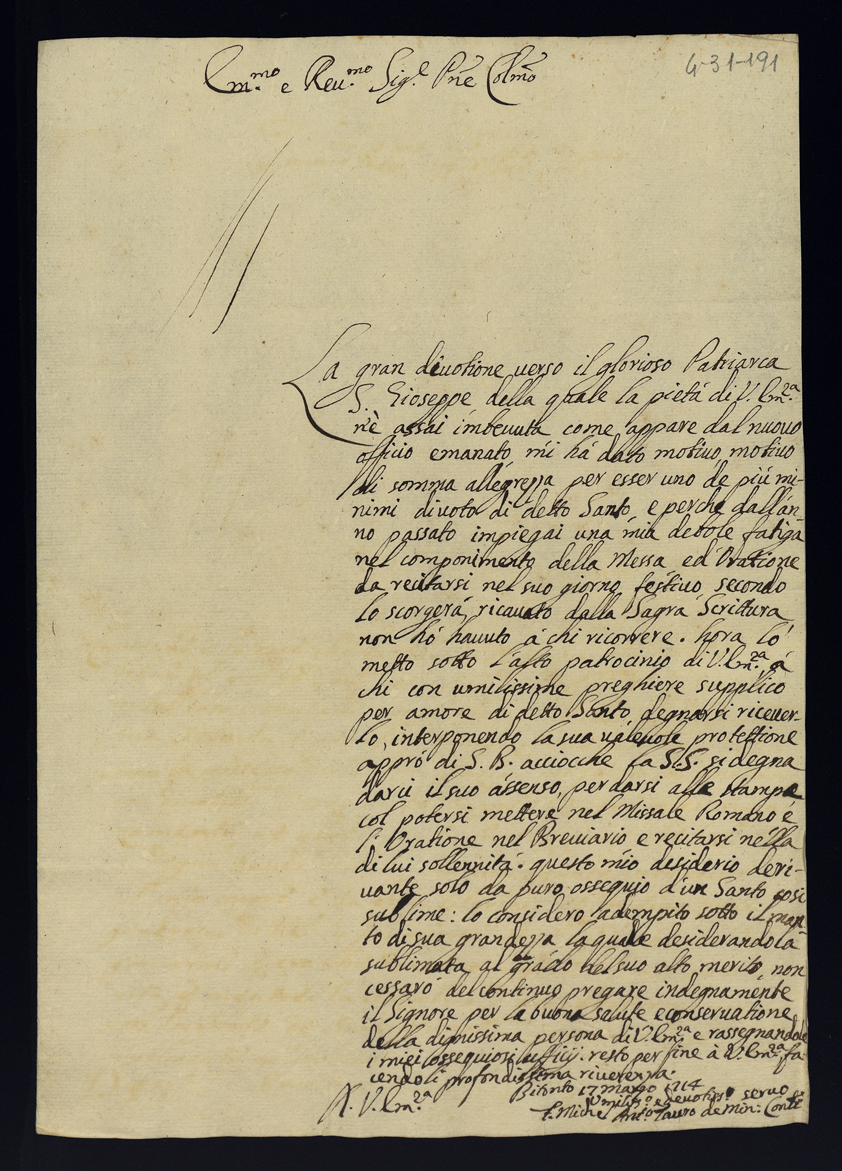 Em.mo e Reu.mo Sig.e Pñe Colmõ
4-31-191
La gran diuotione uerso il glorioso Patriarca
S. Gioseppe della quale la pietá di V. Em.za
n'è assai imbeuuta come appare dal nuouo
officio emanato, mi há dato motiuo motiuo
di somma allegrezza per esser uno de piú mi-
nimi diuoto di detto Santo, e perche dall'an-
no passato impiegai una mia debole fatiga
nel componimento della Messa ed Oratione
da recitarsi nel suo giorno festiuo secondo
lo scorgerá, ricauato dalla Sagra Scrittura
non hó hauuto á chi ricorrere. hora ló
metto sotto l'alto patrocinio di V. Em.za á
chi con umilissime preghiere supplico
per amore di detto Santo, degnarsi riceuer-
lo, interponendo la sua ualeuole protettione
appró di S. B. acciocche la S.S. si degna
darci il suo assenso, per darsi alle stampe
col potersi mettere nel Missale Romano é
l'Oratione nel Breuiario e recitarsi nella
di lui sollennitá. questo mio desiderio deri-
uante solo da puro ossequio d'un Santo cosi
sublime: lo considero adempito sotto il man-
to di sua grandezza la quale desiderandola
sublimata al grado del suo alto merito, non
cessaró del continuo pregare indegnamente
il Signore per la buona salute e conseruatione
della dignissima persona di V. Em.za e rassegnandole
i miei ossequiosi ufficij. resto per fine à V. Em.za fa-
cendoli profondissima riuerenza.
Bitonto 17 marzo 1714
A. V. Em.za
Umiliss.o e deuotiss.o seruo
f. Michel Ant.o Lauro de Min: Conti